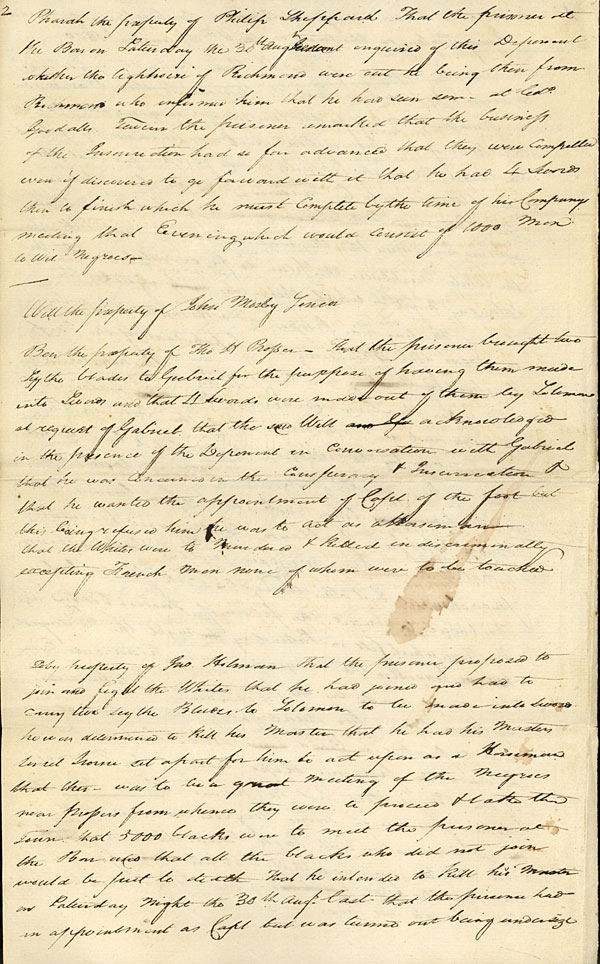 2
Pharoah the property of Philip Sheppard That the prisoner at
the Bar on Saturday the 30th August enquired of this Deponent
whether the lighthorse of Richmond were out he being then from
Richmond who informed him that he had seen some at Col.
Goodalls Tavern the prisoner remarked that the business
of the Insurrection had so far advanced that they were compelled
even if discovered to go forward with it that he had 4 Swords
then to finish which he must complete by the time of his Company
meeting that Evening which would consist of 1000 Men
to wit Negroes—
Will the property of John Mosby Senior
Ben the property of Tho H Prosser — That the prisoner brought two
Sythe blades to Gabriel for the purppose of having them made
into Swords and that 4 swords were made out of them by Solomon
at request of Gabriel. that the said Will acknowledged
in the presence of the Deponent in Conversation with Gabriel
that he was concerned in the Conspiracy & Insurrection &
that he wanted the appointment of Capt. of the foot but
this being refused him he was to act as a Horseman
that the Whites were to Murdered & killed indiscriminally
excepting French Men none of whom were to be touched
property of Jno. Holman that the prisoner proposed to
join and fight the Whites that he had joined and had to
carry two scythe Blades to Solomon to be made into swords
he was determined to kill his Master that he had his Masters
Sorrel Horse set apart for him to act upon as a Horseman
that there was to be a great Meeting of the Negroes
near Prossers from whence they were to proceed & take the
Town. that 5000 blacks were to meet the prisoner at
the Bar and that all the blacks who did not join
would be put to death That he intended to kill his Master
on Saturday Night the 30th Augt. last that the prisoner had
an appointment as Capt but was turned out being undersize